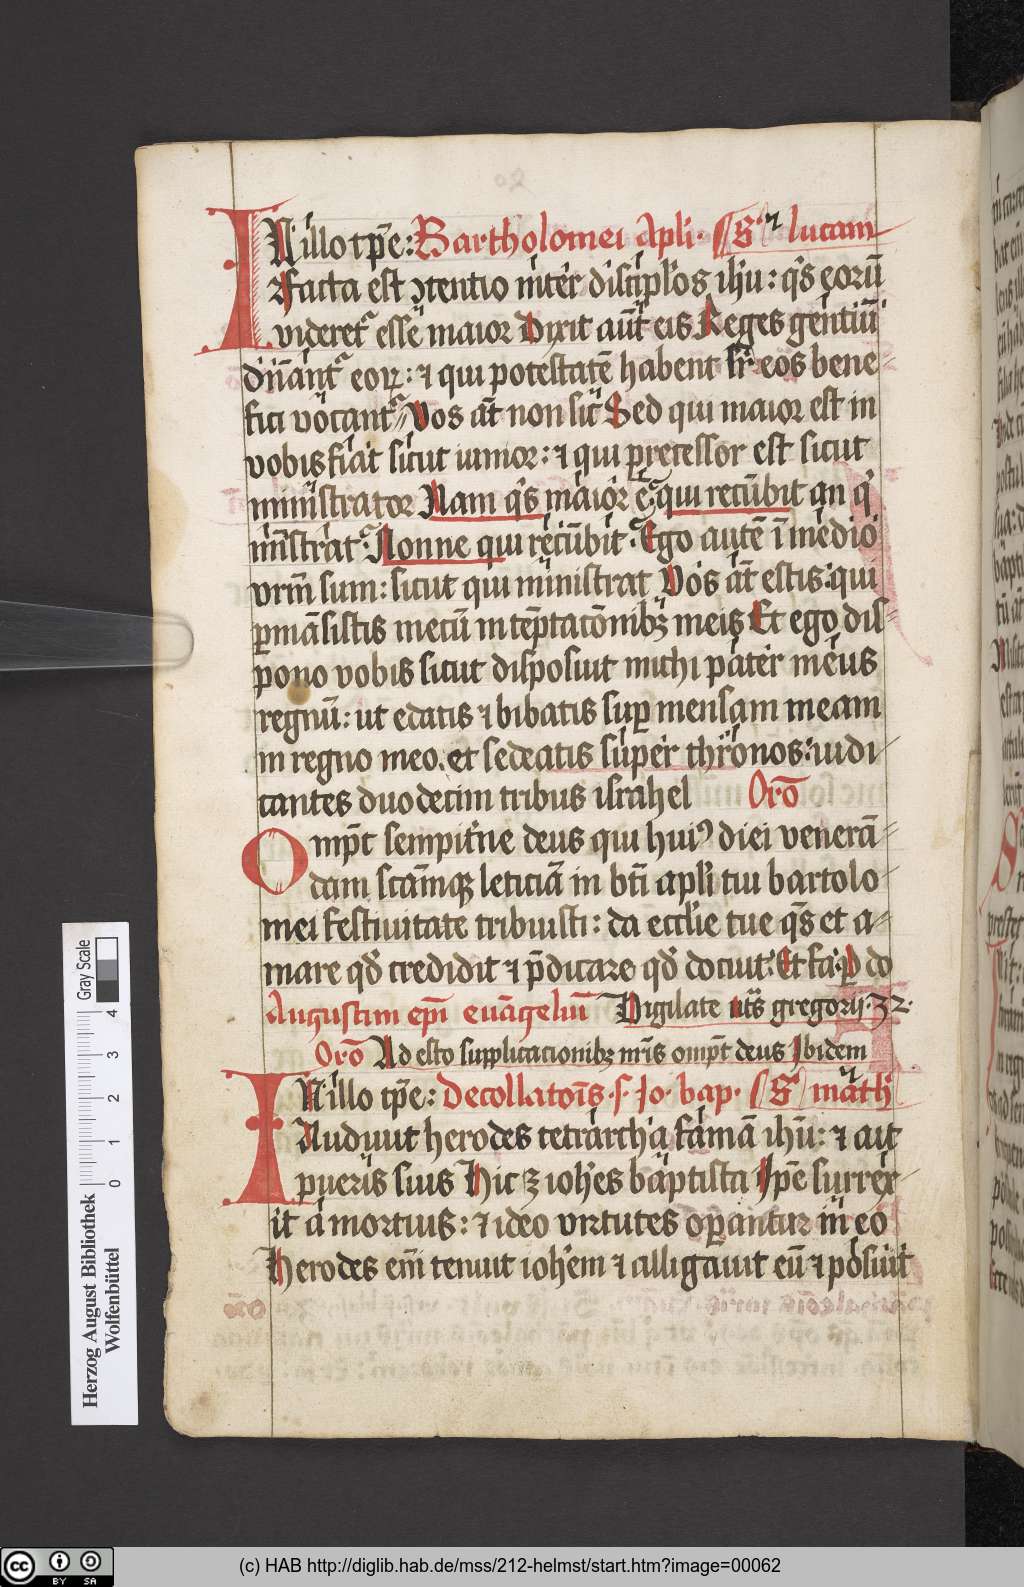 IN illo tp̄e: Bartholomei Apli· S· lucam
Facta est ꝯtentio int̄er discipl̓os ih̓u: q̓s eorū
videret᷑ esse maior Dixit aūt eis Reges gentiū
dn̄ant᷑ eoꝝ: ⁊ qui potestatē habent sr̄ eos bene⸗
fici vocant᷑ Vos āt non sic̄ Sed qui maior est in
vobis fiat sicut iunior: ⁊ qui p̄recessor est sicut
ministrator Nam q̓s maior ē qui recūbit an q̓
mīstrat: Nonne qui recūbit: Ego autē ī medio
vrm̄ sum: sicut qui ministrat Vos āt estis: qui
ꝑmāsistis mecū in tēptacōnibꝫ meis Et ego dis⸗
pono vobis sicut disposuit michi pater meus
regnū: ut edatis ⁊ bibatis suꝑ mensam meam
in regno meo. et sedeatis super thronos: iudi⸗
cantes duodecim tribus israhel Orō
Omp̄t sempit̓ne deus qui huiꝰ diei venerā⸗
dam scāmqꝫ leticiā in bt̄i apl̓i tui bartolo⸗
mei festiuitate tribuisti: da eccl̓ie tue q̄s et a⸗
mare qd̓ credidit ⁊ p̄dicare qd̓ docuit: Et fa· ꝑ do
Augustini ep̄i euāgeliū Vigilate ut̄s gregorij· 32·
Orō Ad esto supplicacionibꝫ nr̄is omp̄t deus Ibidem
IN illo tp̄e: Decollatoīs· s· Jo· bap· S math̓
Audiuit herodes tetrarcha famā ih̄u: ⁊ ait
pueris suis Hic ꝫ ioh̓es baptista Ip̄e surrex⸗
it a mortuis: ⁊ ideo virtutes oꝑantur in eo
Herodes em̄ tenuit ioh̓em ⁊ alligauit eū ⁊ posuit
Herzog August Bibliothek
Wolfenbüttel
0 1 2 3 4
Gray Scale
cc BY SA
(c) HAB http://diglib.hab.de/mss/212-helmst/start.htm?image=00062